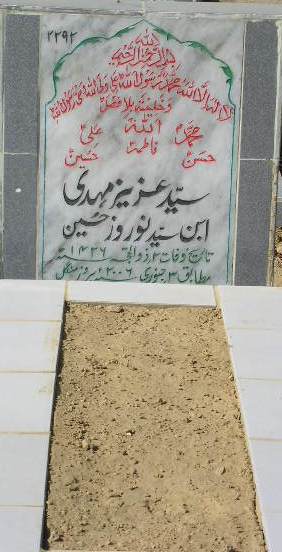 ۲۲۹۲
بسم اللہ الرحمن الرحیم
لا الہ الا اللہ محمد رسول اللہ علی ولی اللہ وصی رسول اللہ
وخلیفتہ بلا فصل
محمدؐ اللہ علیؑ
حسنؑ فاطمہؑ حسینؑ
سیّد عزیز مہدی
ابن سیّد نوروز حسین
تاریخ وفات ۲ ذوالحجہ ۱۴۲۶
مطابق ۳ جنوری ۲۰۰۶ بروز منگل